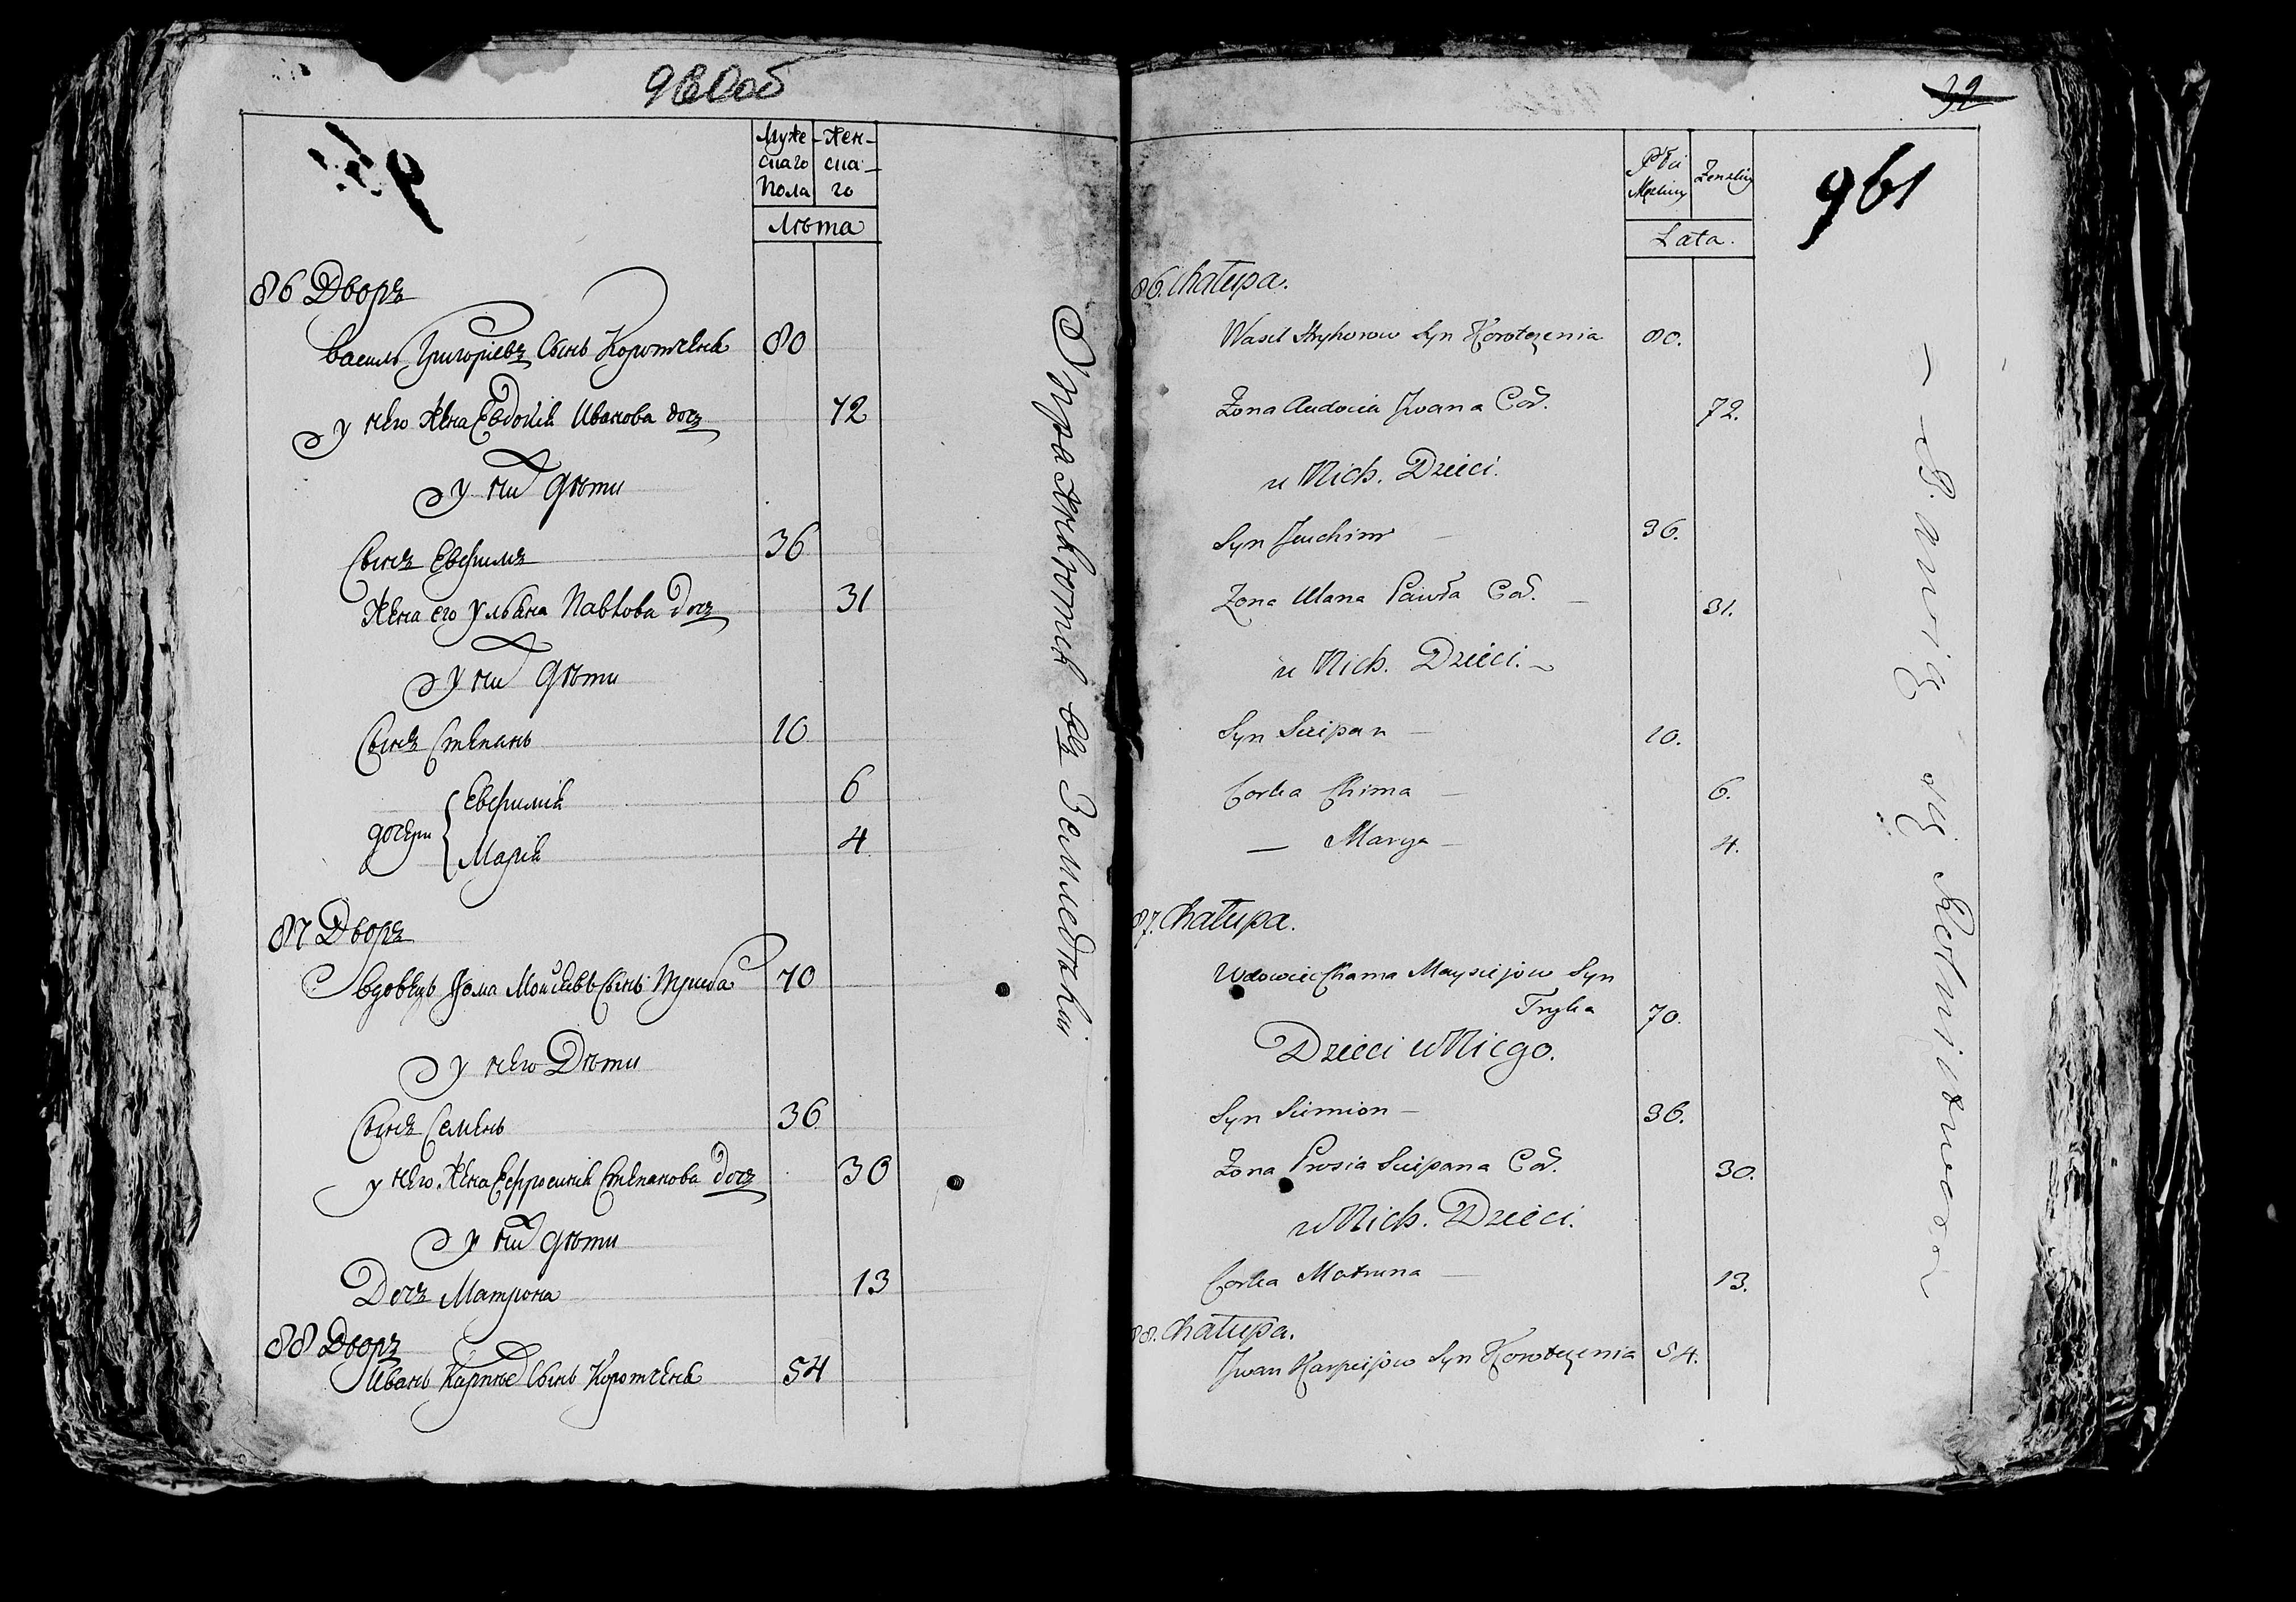 960об
Муже-
скаго
пола
Жен-
ска-
го
Лѣта
86 Дворъ
Василь Григоріевъ Сынъ Коротченя 80
у него Жена Евдокія Иванова дочъ 72
у ни дѣти
Сынъ Евфимъ 36
Жена его Ульяна Павлова дочъ 31
у ни дѣти
Сынъ Степанъ 10
дочери
Евфимія 6
Марія 4
87 Дворъ
вдовецъ Фома Моисѣевъ Сынъ 70
у него Дѣти
Сынъ Семенъ 36
у него Жена Ефросинія Степанова дочъ 30
у ни дѣти
Дочъ Матрона 13
88 Дворъ
Иванъ Карпѣе Сынъ Коротченя 54
въ
32
961
Płci
Męzkiey
Zenskiey
Lata.
86. Chałupa.
Wasil Hryhorow Syn Korotczenia 80.
Zona Audocia Jwana Cór. 72.
u Nich. Dzieci.
Syn Jeuchim 36.
Zona Ulana Pawła Cór. 31.
u Nich. Dzieci.
Syn Sciepan 10.
Corka Chima 6.
— Marya 4.
87. Chałupa.
Wdowiec Chama Maysiejow Syn
Tryka 70.
Dzieci u Niego.
Syn Siemion 36.
Zona Prosia Sciepana Cór. 30.
u Nich. Dzieci.
Corka Matruna 13.
88. Chałupa.
Jwan Karpiejow Syn Korotczenia 54.